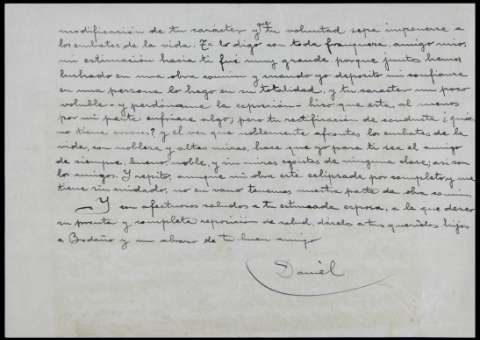 modificación de tu caracter y que tu voluntad sepa imponerse a
los embates de la vida. Te lo digo con toda franqueza, amigo mio,
mi estimación hacia ti fué muy grande porque juntos hemos
luchado en una obra comun y cuando yo deposito mi confianza
en una persona lo hago en su totalidad, y tu caracter un poco
voluble - y perdóname la exposición - hizo que esta, al menos
por mi parte enfriase algo; pero tu rectificación de conducta ¿quién
no tiene errores? y el ver que noblemente afrontas los embates de la
vida, con nobleza y altas miras, hace que yo para ti sea el amigo
de siempre, bueno, noble, y sin miras egoistas de ninguna clase; asi son
los amigos. Y repito, aunque mi obra esté eclipsada por completo y me
tiene sin cuidado, no en vano tenemos nuestra parte de obra comun.
Y con afectuosos saludos a tu estimada esposa, a la que deseo
su pronta y completa reposicion de salud, dáselos a tus queridos hijos
a Bedaño y un abrazo de tu buen amigo
Daniel